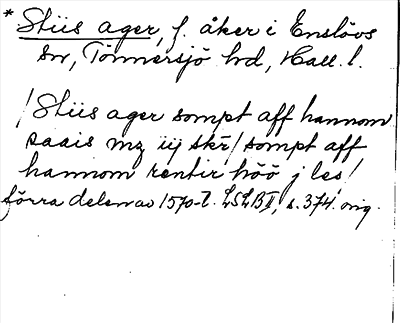 * Stiis ager, f. åker i Enslövs
sn, Tönnersjö hd, Hall. l.
/ Stiis ager sompt aff hannom
saais mz iij skr̄ / sompt aff
hannom rentir höö j les /
förra delen av 1570-t. LSLB II, s. 374. orig.